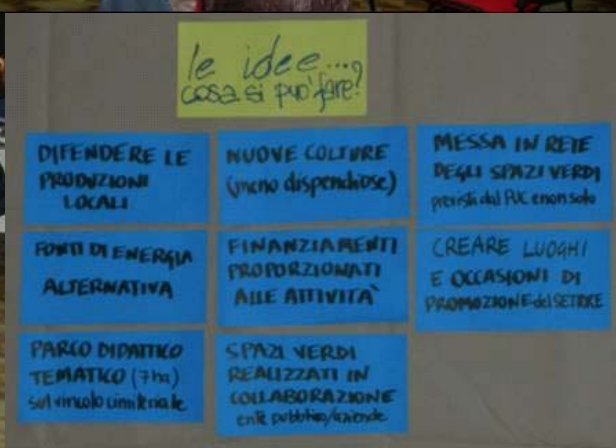 le idee...
cosa si può fare?
DIFENDERE LE
PRODUZIONI
LOCALI
NUOVE COLTURE
(meno dispendiose)
MESSA IN RETE
DEGLI SPAZI VERDI
previsti dal PUC e non solo
FONTI DI ENERGIA
ALTERNATIVA
FINANZIAMENTI
PROPORZIONATI
ALLE ATTIVITÀ
CREARE LUOGHI
E OCCASIONI DI
PROMOZIONE del SETTORE
PARCO DIDATTICO
TEMATICO (7 ha)
sul vincolo cimiteriale
SPAZI VERDI
REALIZZATI IN
COLLABORAZIONE
ente pubblico/aziende